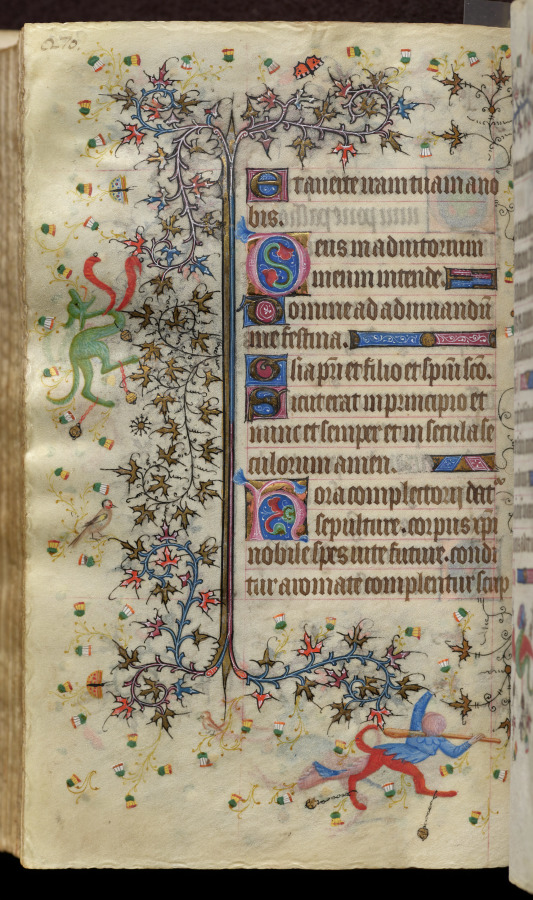 Et auerte iram tuam a no
bis.
Deus in adiutorium
meum intende
Domine ad adiuuandū
me festina.
Glia pr̄i et filio et spūi scō.
Sicut erat in principio et
nunc et semper et in secula se
culorum amen.
Hora completorij dat̄
sepulture. corpus xp̄i
nobile spes uite future. condi
tur aromate complentur scrip